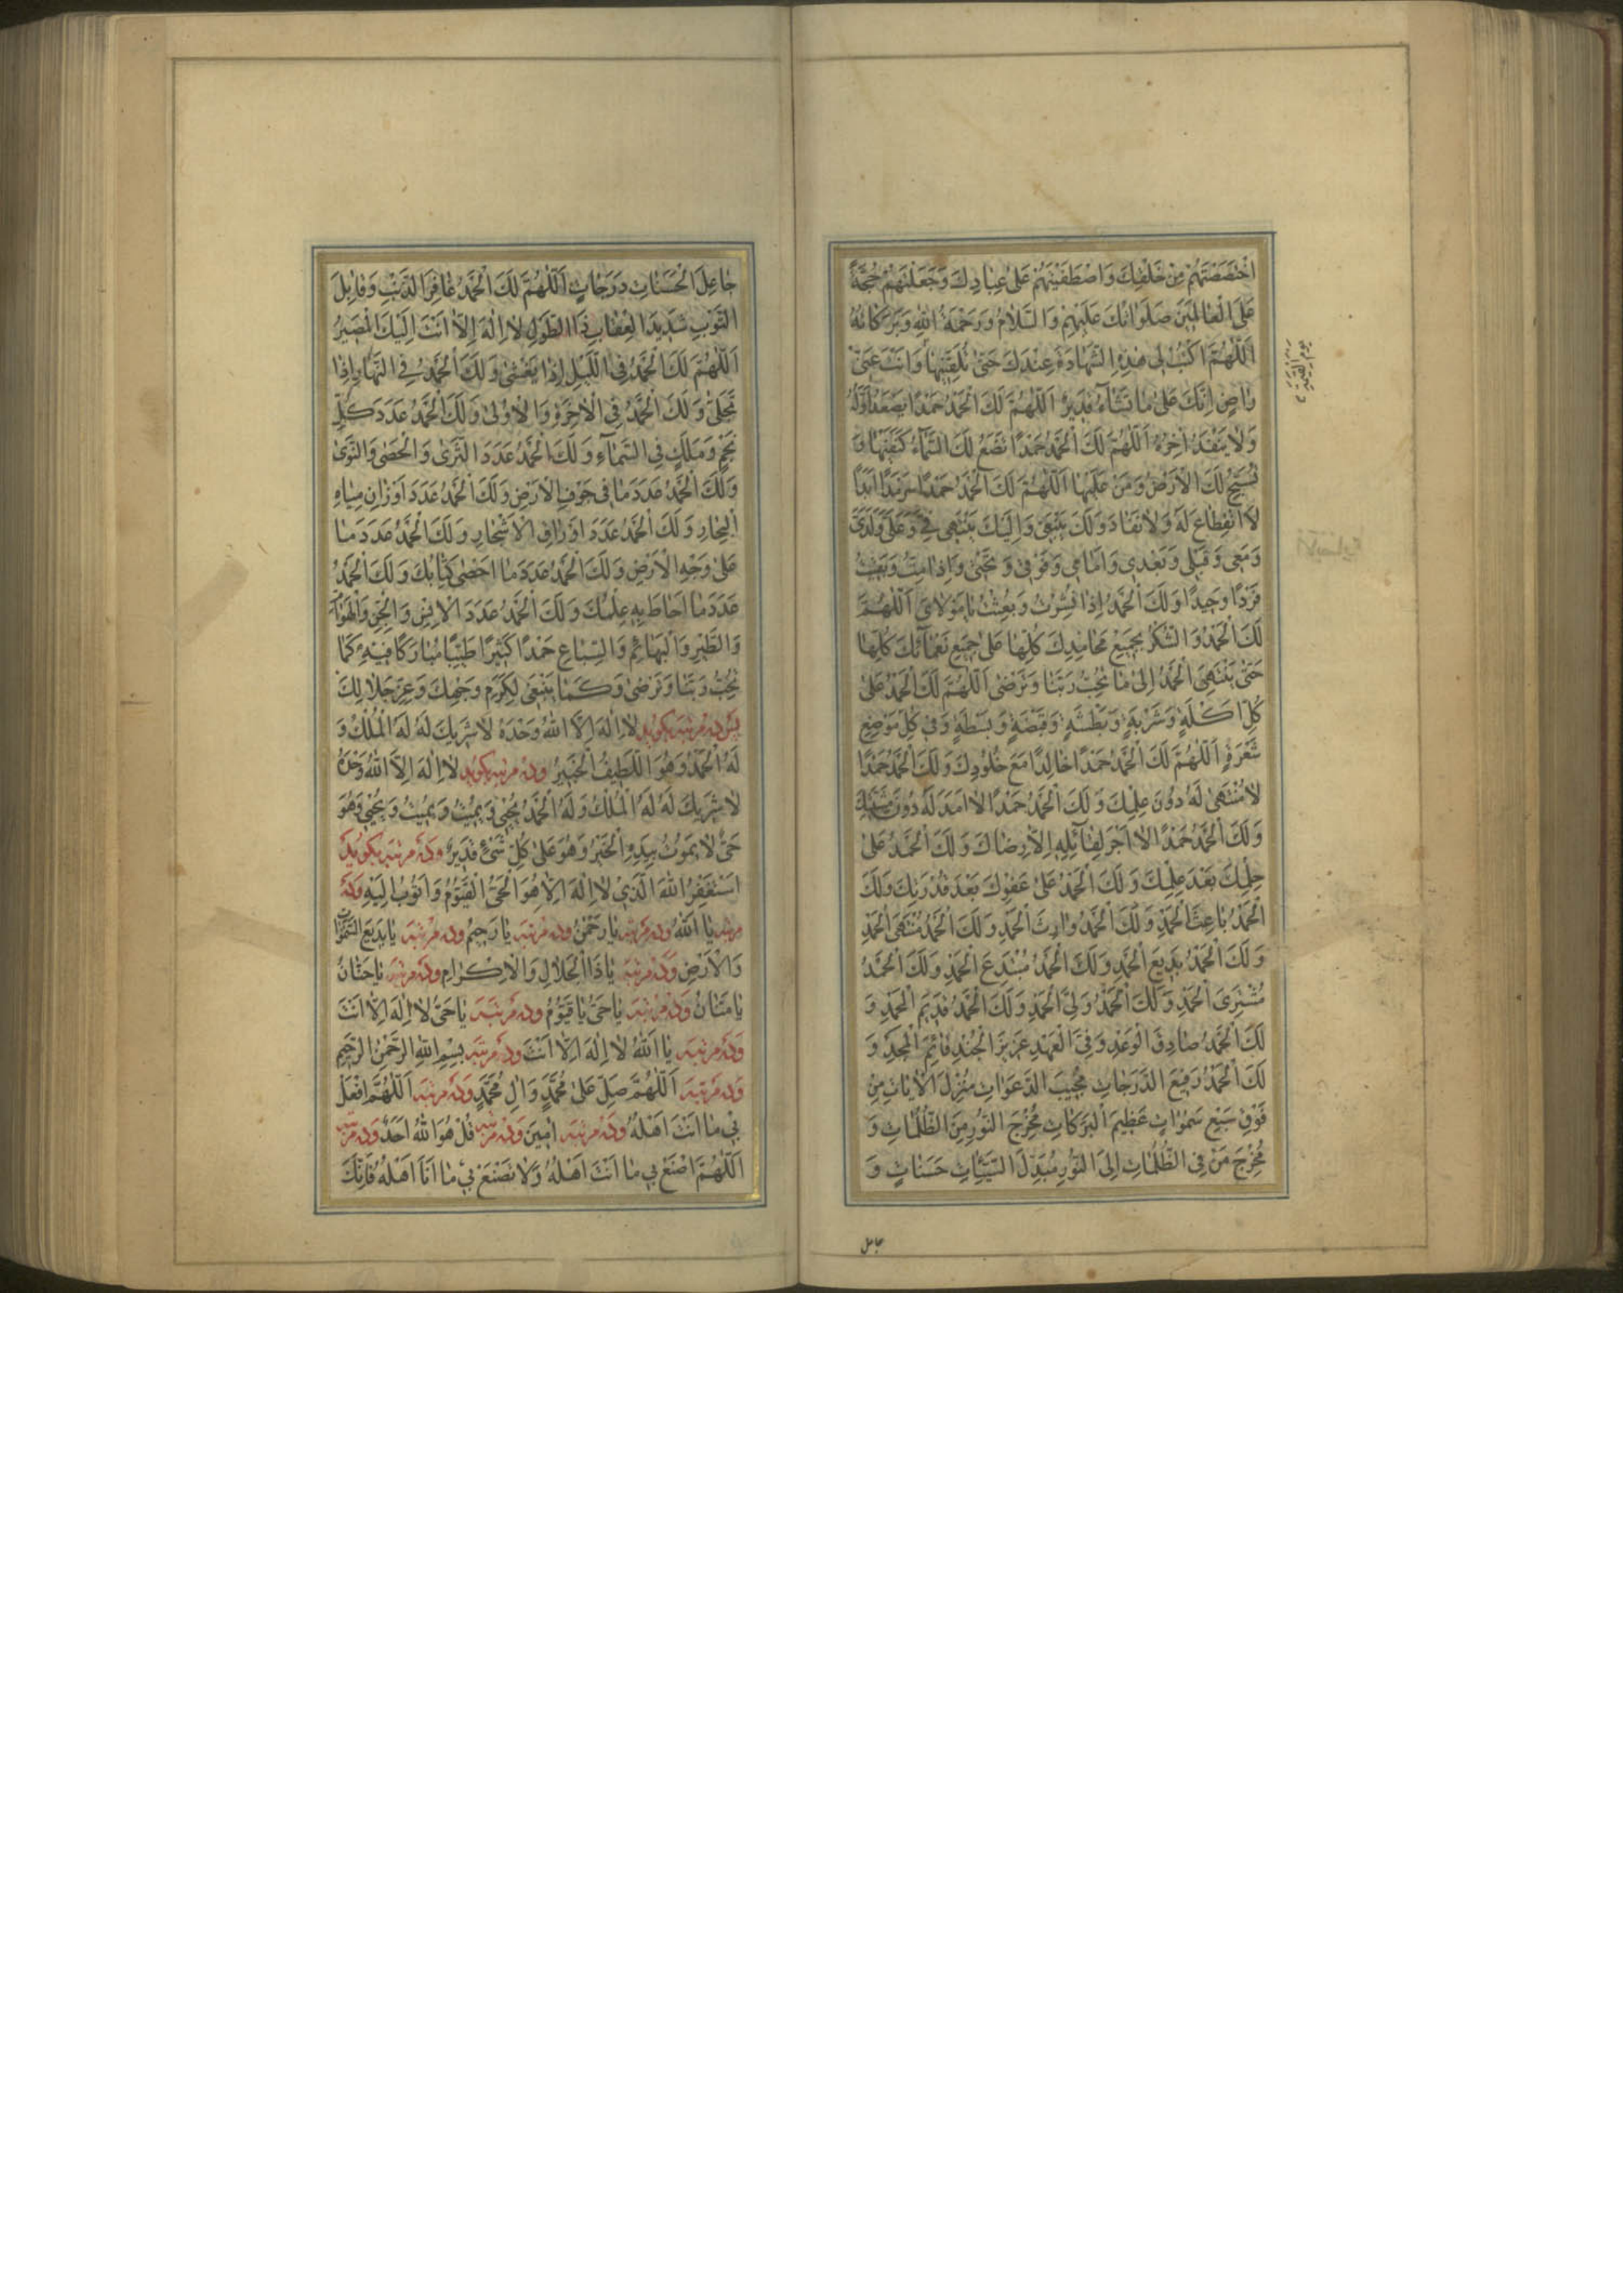 اخْتَصَصْتَهُمْ مِنْ خَلْقِكَ وَاصْطَفَيْتَهُمْ عَلىٰ عِبادِكَ وَجَعَلْتَهُمْ حُجَّةً
عَلَى الْعالَمينَ صَلَواتُكَ عَلَيْهِمْ وَالسَّلامُ وَرَحْمَةُ اللّٰهِ وَبَرَكاتُهُ
اَللّٰهُمَّ اكْتُبْ لى هٰذِهِ الشَّهادَةَ عِنْدَكَ حَتّىٰ تُلَقِّنيها وَاَنْتَ عَنّى
راضٍ اِنَّكَ عَلىٰ ما تَشآءُ قَديرٌ اَللّٰهُمَّ لَكَ الْحَمْدُ حَمْدًا يَصْعَدُ اَوَّلُهُ
وَلا يَنْفَدُ اٰخِرُهُ اَللّٰهُمَّ لَكَ الْحَمْدُ حَمْدًا تَضَعُ لَكَ السَّمآءُ كَنَفَيْها وَ
تُسَبِّحُ لَكَ الْاَرْضُ وَمَنْ عَلَيْها اَللّٰهُمَّ لَكَ الْحَمْدُ حَمْدًا سَرْمَدًا اَبَدًا
لَا انْقِطاعَ لَهُ وَلا نَفادَ وَلَكَ يَنْبَغى وَاِلَيْكَ يَنْتَهى فِىَّ وَعَلَىَّ وَلَدَىَّ
وَمَعى وَقَبْلى وَبَعْدى وَاَمامى وَفَوْقى وَتَحْتى وَاِذا مِتُّ وَبَقيتُ
فَرْدًا وَحيدًا وَلَكَ الْحَمْدُ اِذا نُشِرْتُ وَبُعِثْتُ يا مَوْلاىَ اَللّٰهُمَّ
لَكَ الْحَمْدُ وَالشُّكْرُ بِجَميعِ مَحامِدِكَ كُلِّها عَلىٰ جَميعِ نَعْمآئِكَ كُلِّها
حَتّىٰ يَنْتَهِىَ الْحَمْدُ اِلىٰ ما تُحِبُّ رَبَّنا وَتَرْضىٰ اَللّٰهُمَّ لَكَ الْحَمْدُ عَلىٰ
كُلِّ اَكْلَةٍ وَشَرْبَةٍ وَبَطْشَةٍ وَقَبْضَةٍ وَبَسْطَةٍ وَفى كُلِّ مَوْضِعِ
شَعْرَةٍ اَللّٰهُمَّ لَكَ الْحَمْدُ حَمْدًا خالِدًا مَعَ خُلُودِكَ وَلَكَ الْحَمْدُ حَمْدًا
لا مُنْتَهىٰ لَهُ دُونَ عِلْمِكَ وَلَكَ الْحَمْدُ حَمْدًا لا اَمَدَ لَهُ دُونَ مَشِيَّتِكَ
وَلَكَ الْحَمْدُ حَمْدًا لا اَجْرَ لِقآئِلِهِ اِلّا رِضاكَ وَلَكَ الْحَمْدُ عَلىٰ
حِلْمِكَ بَعْدَ عِلْمِكَ وَلَكَ الْحَمْدُ عَلىٰ عَفْوِكَ بَعْدَ قُدْرَتِكَ وَلَكَ
الْحَمْدُ باعِثَ الْحَمْدِ وَلَكَ الْحَمْدُ وارِثَ الْحَمْدِ وَلَكَ الْحَمْدُ مُنْتَهَى الْحَمْدِ
وَلَكَ الْحَمْدُ بَديعَ الْحَمْدِ وَلَكَ الْحَمْدُ مُبْتَدِعَ الْحَمْدِ وَلَكَ الْحَمْدُ
مُشْتَرِىَ الْحَمْدِ وَلَكَ الْحَمْدُ وَلِىَّ الْحَمْدِ وَلَكَ الْحَمْدُ قَديمَ الْحَمْدِ وَ
لَكَ الْحَمْدُ صادِقَ الْوَعْدِ وَفِىَّ الْعَهْدِ عَزيزَ الْجُنْدِ قآئِمَ الْمَجْدِ وَ
لَكَ الْحَمْدُ رَفيعَ الدَّرَجاتِ مُجيبَ الدَّعَواتِ مُنْزِلَ الْاٰياتِ مِنْ
فَوْقِ سَبْعِ سَمٰواتٍ عَظيمَ الْبَرَكاتِ مُخْرِجَ النُّورِ مِنَ الظُّلُماتِ وَ
مُخْرِجَ مَنْ فِى الظُّلُماتِ اِلَى النُّورِ مُبَدِّلَ السَّيِّئاتِ حَسَناتٍ وَ
جاعل
جاعِلَ الْحَسَناتِ دَرَجاتٍ اَللّٰهُمَّ لَكَ الْحَمْدُ غافِرَ الذَّنْبِ وَقابِلَ
التَّوْبِ شَديدَ الْعِقابِ ذَا الطَّوْلِ لا اِلٰهَ اِلّا اَنْتَ اِلَيْكَ الْمَصيرُ
اَللّٰهُمَّ لَكَ الْحَمْدُ فِى اللَّيْلِ اِذا يَغْشىٰ وَلَكَ الْحَمْدُ فِى النَّهارِ اِذا
تَجَلّىٰ وَلَكَ الْحَمْدُ فِى الْاٰخِرَةِ وَالْاُولىٰ وَلَكَ الْحَمْدُ عَدَدَ كُلِّ
نَجْمٍ وَمَلَكٍ فِى السَّمآءِ وَلَكَ الْحَمْدُ عَدَدَ الثَّرىٰ وَالْحَصىٰ وَالنَّوىٰ
وَلَكَ الْحَمْدُ عَدَدَ ما فى جَوْفِ الْاَرْضِ وَلَكَ الْحَمْدُ عَدَدَ اَوْزانِ مِياهِ
الْبِحارِ وَلَكَ الْحَمْدُ عَدَدَ اَوْراقِ الْاَشْجارِ وَلَكَ الْحَمْدُ عَدَدَ ما
عَلىٰ وَجْهِ الْاَرْضِ وَلَكَ الْحَمْدُ عَدَدَ ما اَحْصىٰ كِتابُكَ وَلَكَ الْحَمْدُ
عَدَدَ ما اَحاطَ بِهِ عِلْمُكَ وَلَكَ الْحَمْدُ عَدَدَ الْاِنْسِ وَالْجِنِّ وَالْهَوآمِّ
وَالطَّيْرِ وَالْبَهآئِمِ وَالسِّباعِ حَمْدًا كَثيرًا طَيِّبًا مُبارَكًا فيهِ كَما
تُحِبُّ رَبَّنا وَتَرْضىٰ وَكَما يَنْبَغى لِكَرَمِ وَجْهِكَ وَعِزِّ جَلالِكَ
پس ده مرتبه بگويد لا اِلٰهَ اِلَّا اللّٰهُ وَحْدَهُ لا شَريكَ لَهُ لَهُ الْمُلْكُ وَ
لَهُ الْحَمْدُ وَهُوَ اللَّطيفُ الْخَبيرُ وده مرتبه بگويد لا اِلٰهَ اِلَّا اللّٰهُ وَحْدَهُ
لا شَريكَ لَهُ لَهُ الْمُلْكُ وَلَهُ الْحَمْدُ يُحْيى وَيُميتُ وَيُميتُ وَيُحْيى وَهُوَ
حَىٌّ لا يَمُوتُ بِيَدِهِ الْخَيْرُ وَهُوَ عَلىٰ كُلِّ شَىْءٍ قَديرٌ وده مرتبه بگويد
اَسْتَغْفِرُ اللّٰهَ الَّذى لا اِلٰهَ اِلّا هُوَ الْحَىُّ الْقَيُّومُ وَاَتُوبُ اِلَيْهِ وده
مرتبه يا اَللّٰهُ وده مرتبه يا رَحْمٰنُ وده مرتبه يا رَحيمُ وده مرتبه يا بَديعَ السَّمٰواتِ
وَالْاَرْضِ وده مرتبه يا ذَا الْجَلالِ وَالْاِكْرامِ وده مرتبه يا حَنّانُ
يا مَنّانُ وده مرتبه يا حَىُّ يا قَيُّومُ وده مرتبه يا حَىُّ لا اِلٰهَ اِلّا اَنْتَ
وده مرتبه يا اَللّٰهُ لا اِلٰهَ اِلّا اَنْتَ وده مرتبه بِسْمِ اللّٰهِ الرَّحْمٰنِ الرَّحيمِ
وده مرتبه اَللّٰهُمَّ صَلِّ عَلىٰ مُحَمَّدٍ وَاٰلِ مُحَمَّدٍ وده مرتبه اَللّٰهُمَّ افْعَلْ
بى ما اَنْتَ اَهْلُهُ وده مرتبه اٰمينَ وده مرتبه قُلْ هُوَ اللّٰهُ اَحَدٌ وده مرتبه
اَللّٰهُمَّ اصْنَعْ بى ما اَنْتَ اَهْلُهُ وَلا تَصْنَعْ بى ما اَنَا اَهْلُهُ فَاِنَّكَ